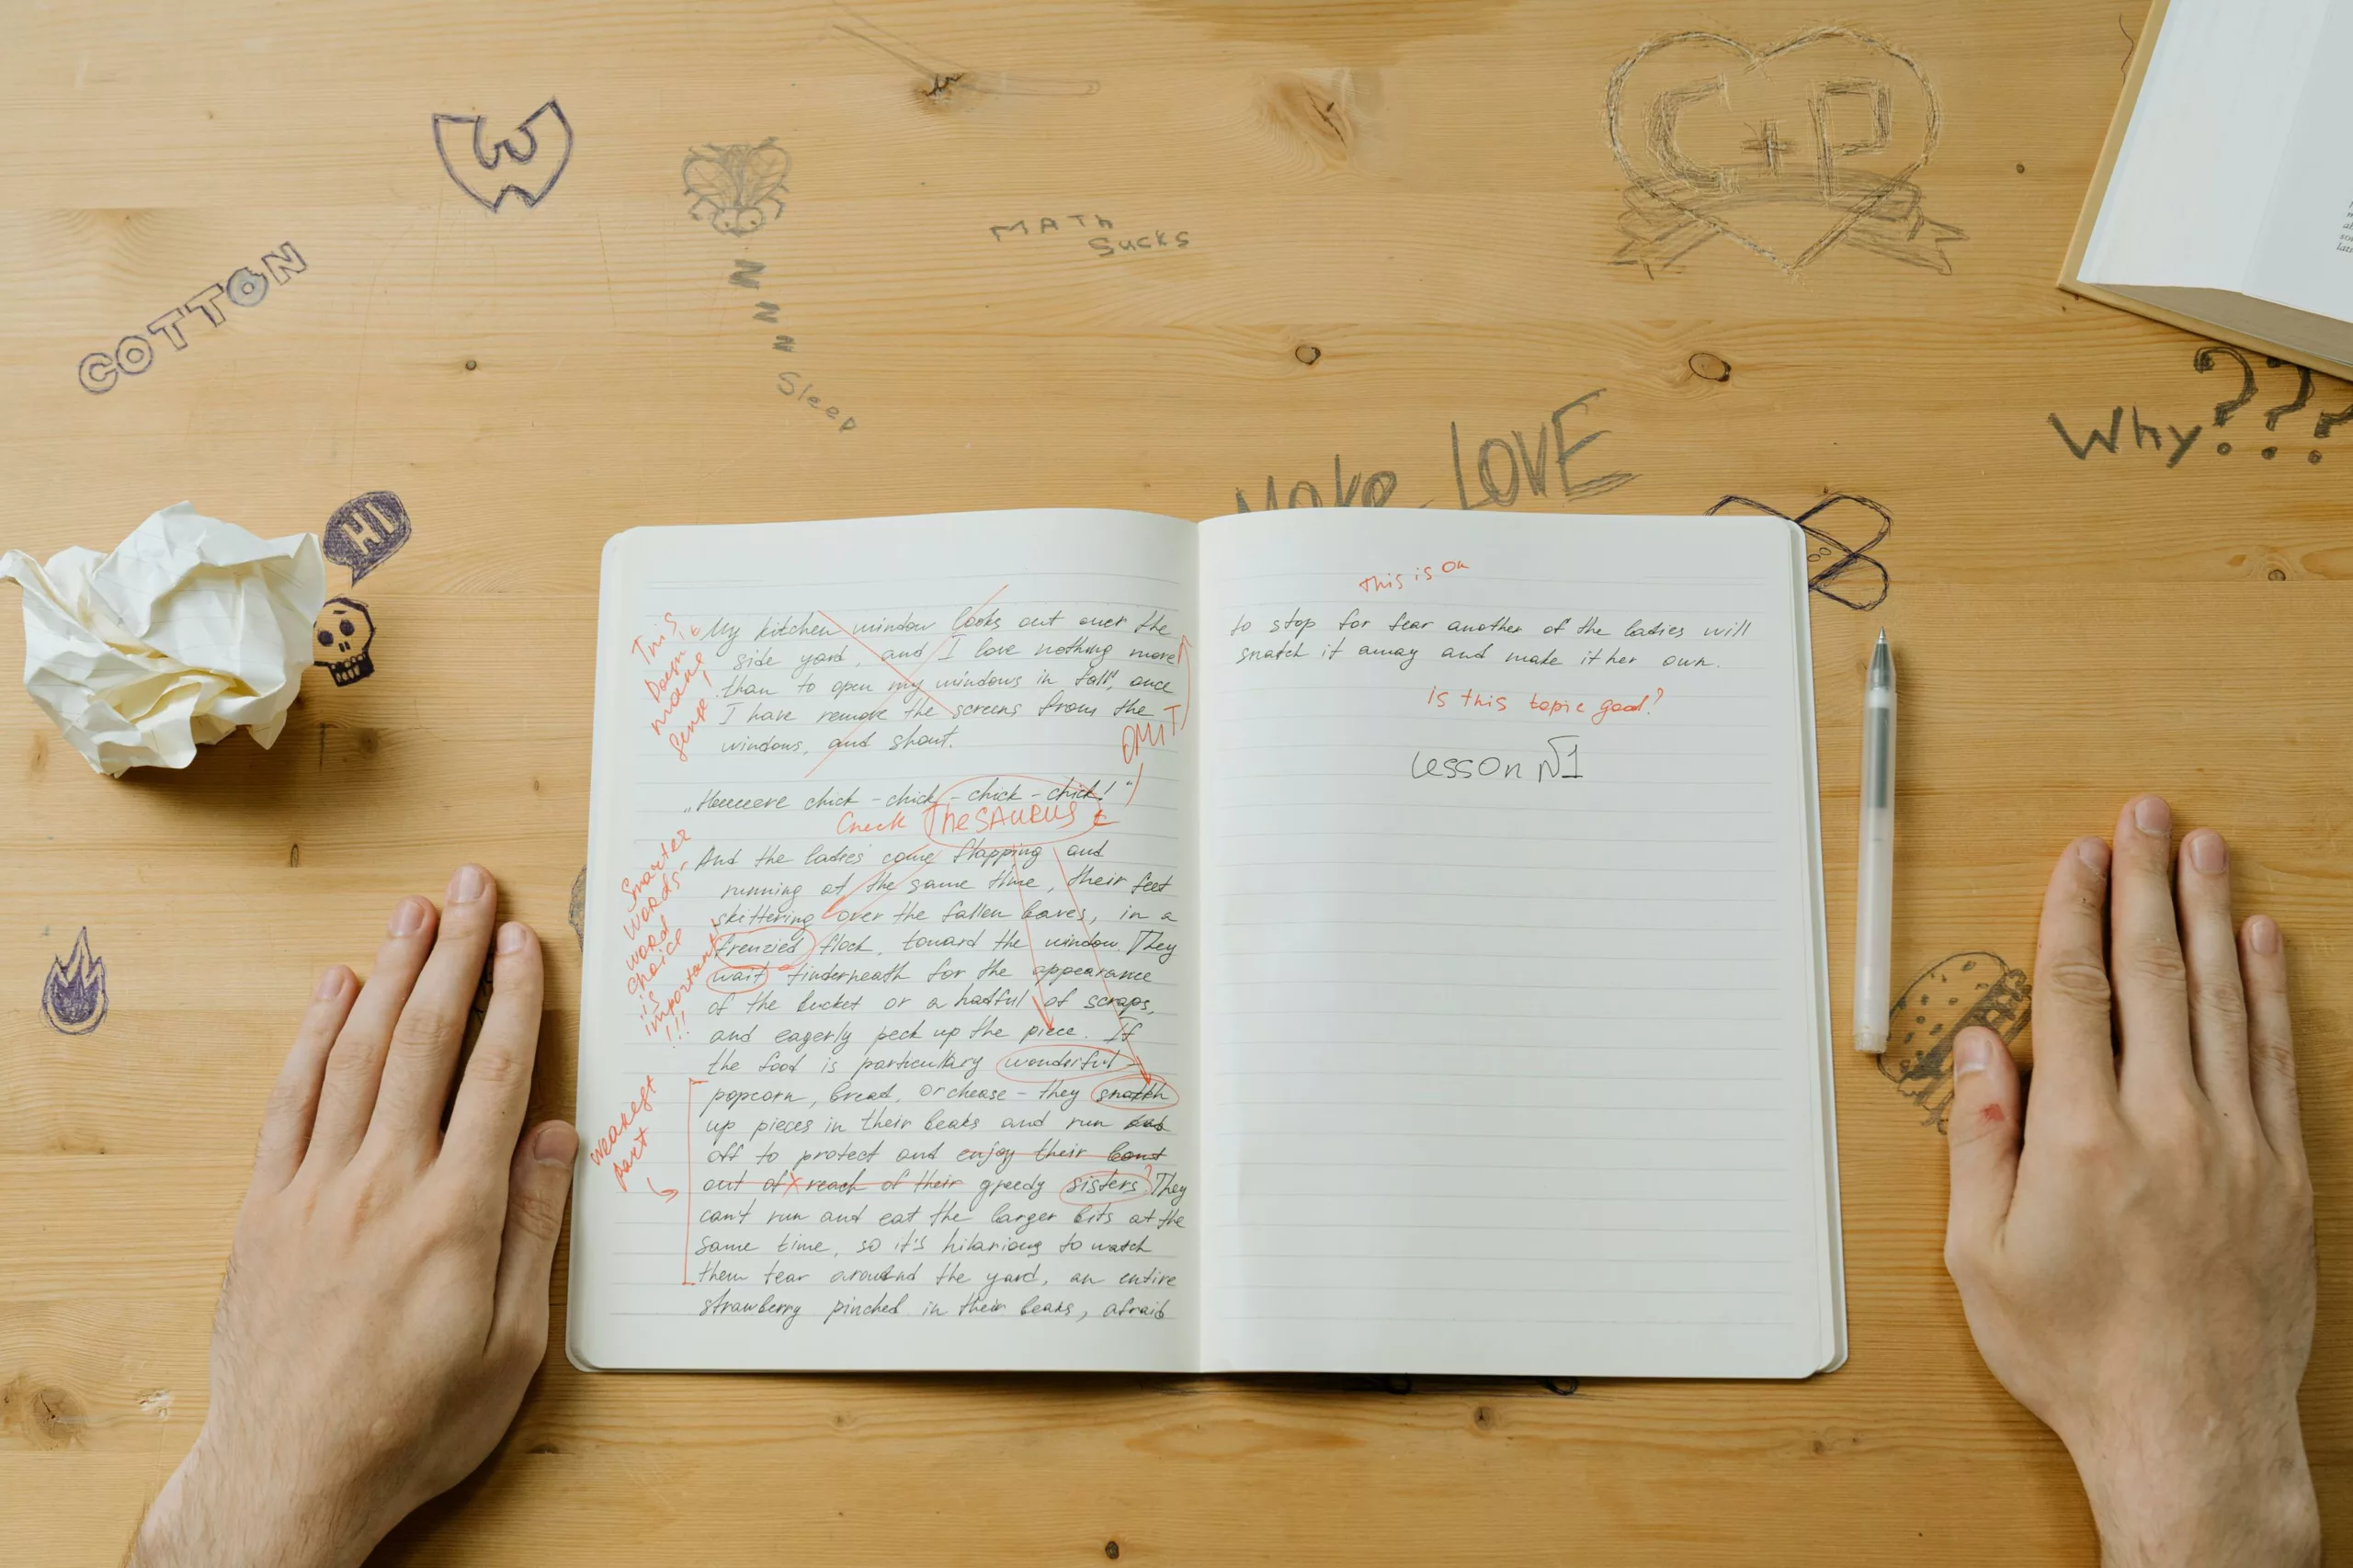 W
C+P
MATh
Sucks
COTTON
N
N
N
N
Sleep
Make LOVE
Why???
HI
This
Doesn't
make
sense!
My kitchen window looks out over the
side yard, and I love nothing more
than to open my windows in fall, once
I have remove the screens from the
windows, and shout.
OMIT
„Heeeeere chick - chick - chick - chick! “
Check TheSAURUS
Smarter
words-
word
choice
is
important
!!!
And the ladies come flapping and
running at the same time, their feet
skittering over the fallen leaves, in a
frenzied flock, toward the window. They
wait underneath for the appearance
of the bucket or a hatful of scraps,
and eagerly peck up the piece. If
the food is particullary wonderful -
popcorn, bread, or chease - they snatch
weakest
part
up pieces in their beaks and run
off to protect and enjoy their
out of x reach of their greedy sisters? They
can't run and eat the larger bits at the
same time, so it's hilarious to watch
them tear around the yard, an entire
strawberry pinched in their beaks, afraid
This is OK
to stop for fear another of the ladies will
snatch it away and make it her own.
is this topic good?
Lesson №1